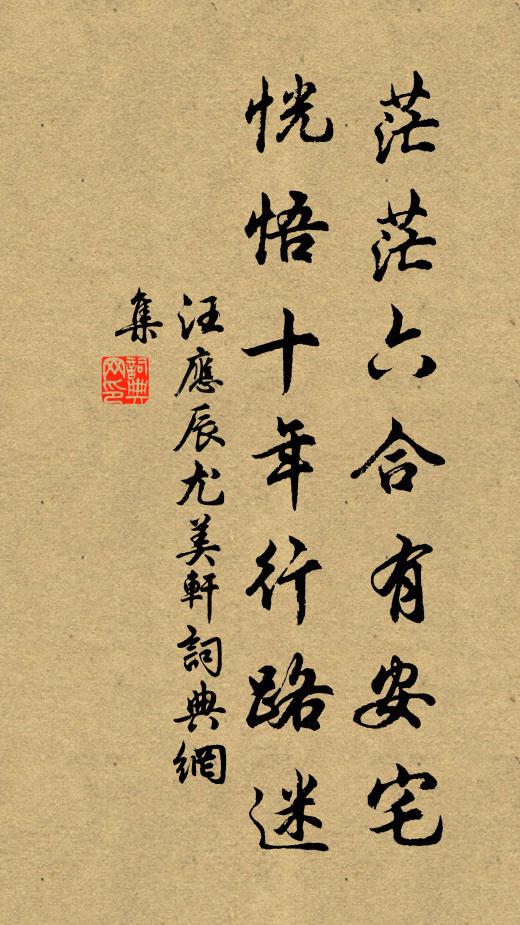 茫茫六合有安宅
恍悟十年行路迷
汪應辰尤美軒詞典網
集
詞典網印